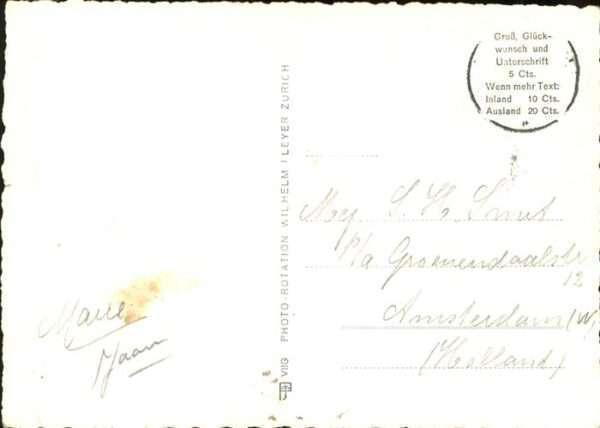 Gruß, Glück-
wunsch und
Unterschrift
5 Cts.
Wenn mehr Text:
Inland 10 Cts.
Ausland 20 Cts.
PHOTO-ROTATION WILHELM PLEYER ZURICH
Mej. S. Smit
p/a Groenendaalstr
12
Amsterdam (W)
(Holland)
Marie
Jaan